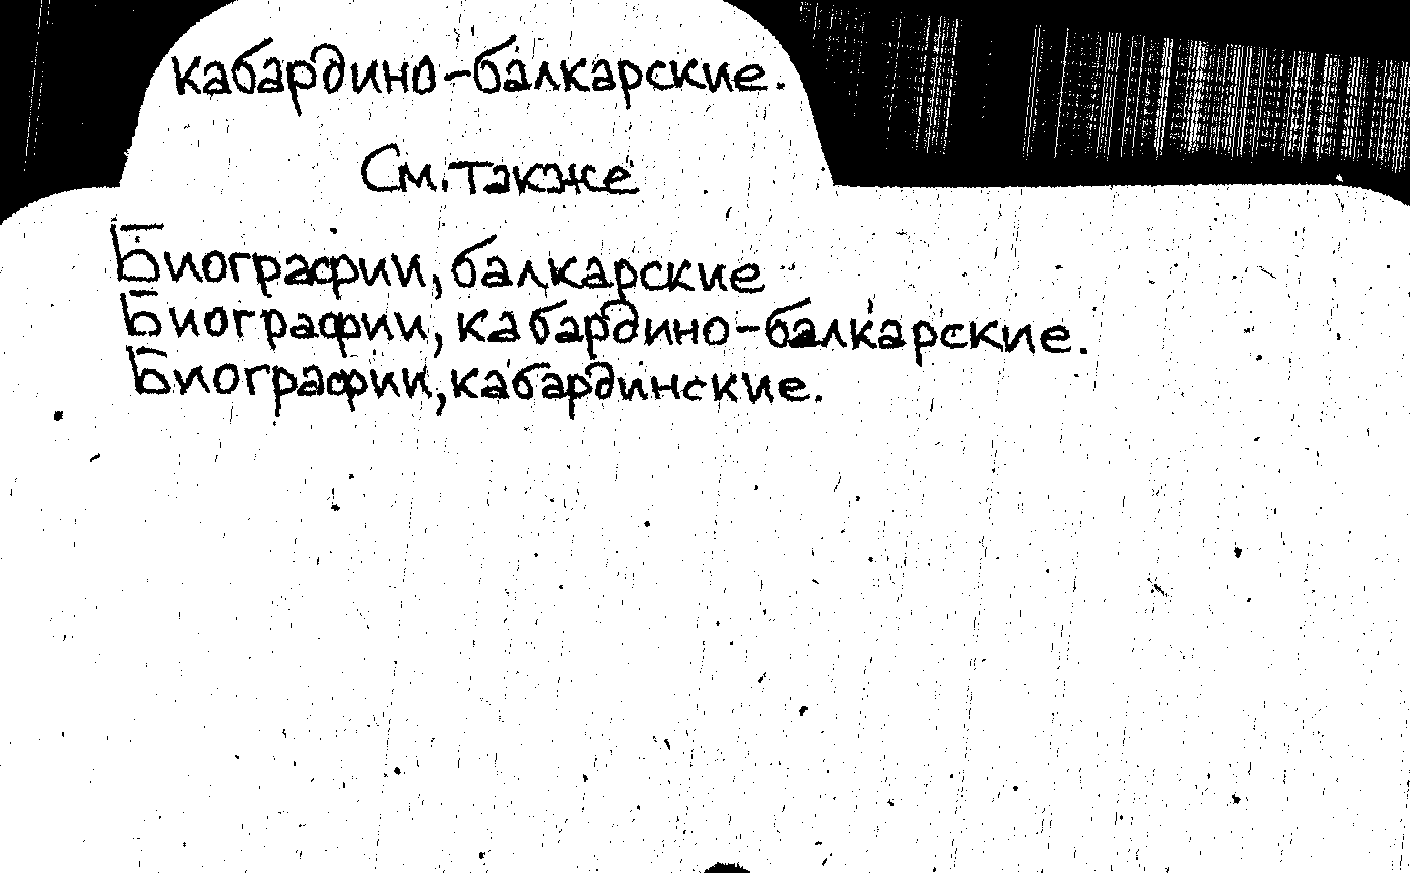 кабардино-балкарские.
См. также
Биографии, балкарские
Биографии, кабардино-балкарские.
Биографии, кабардинские.